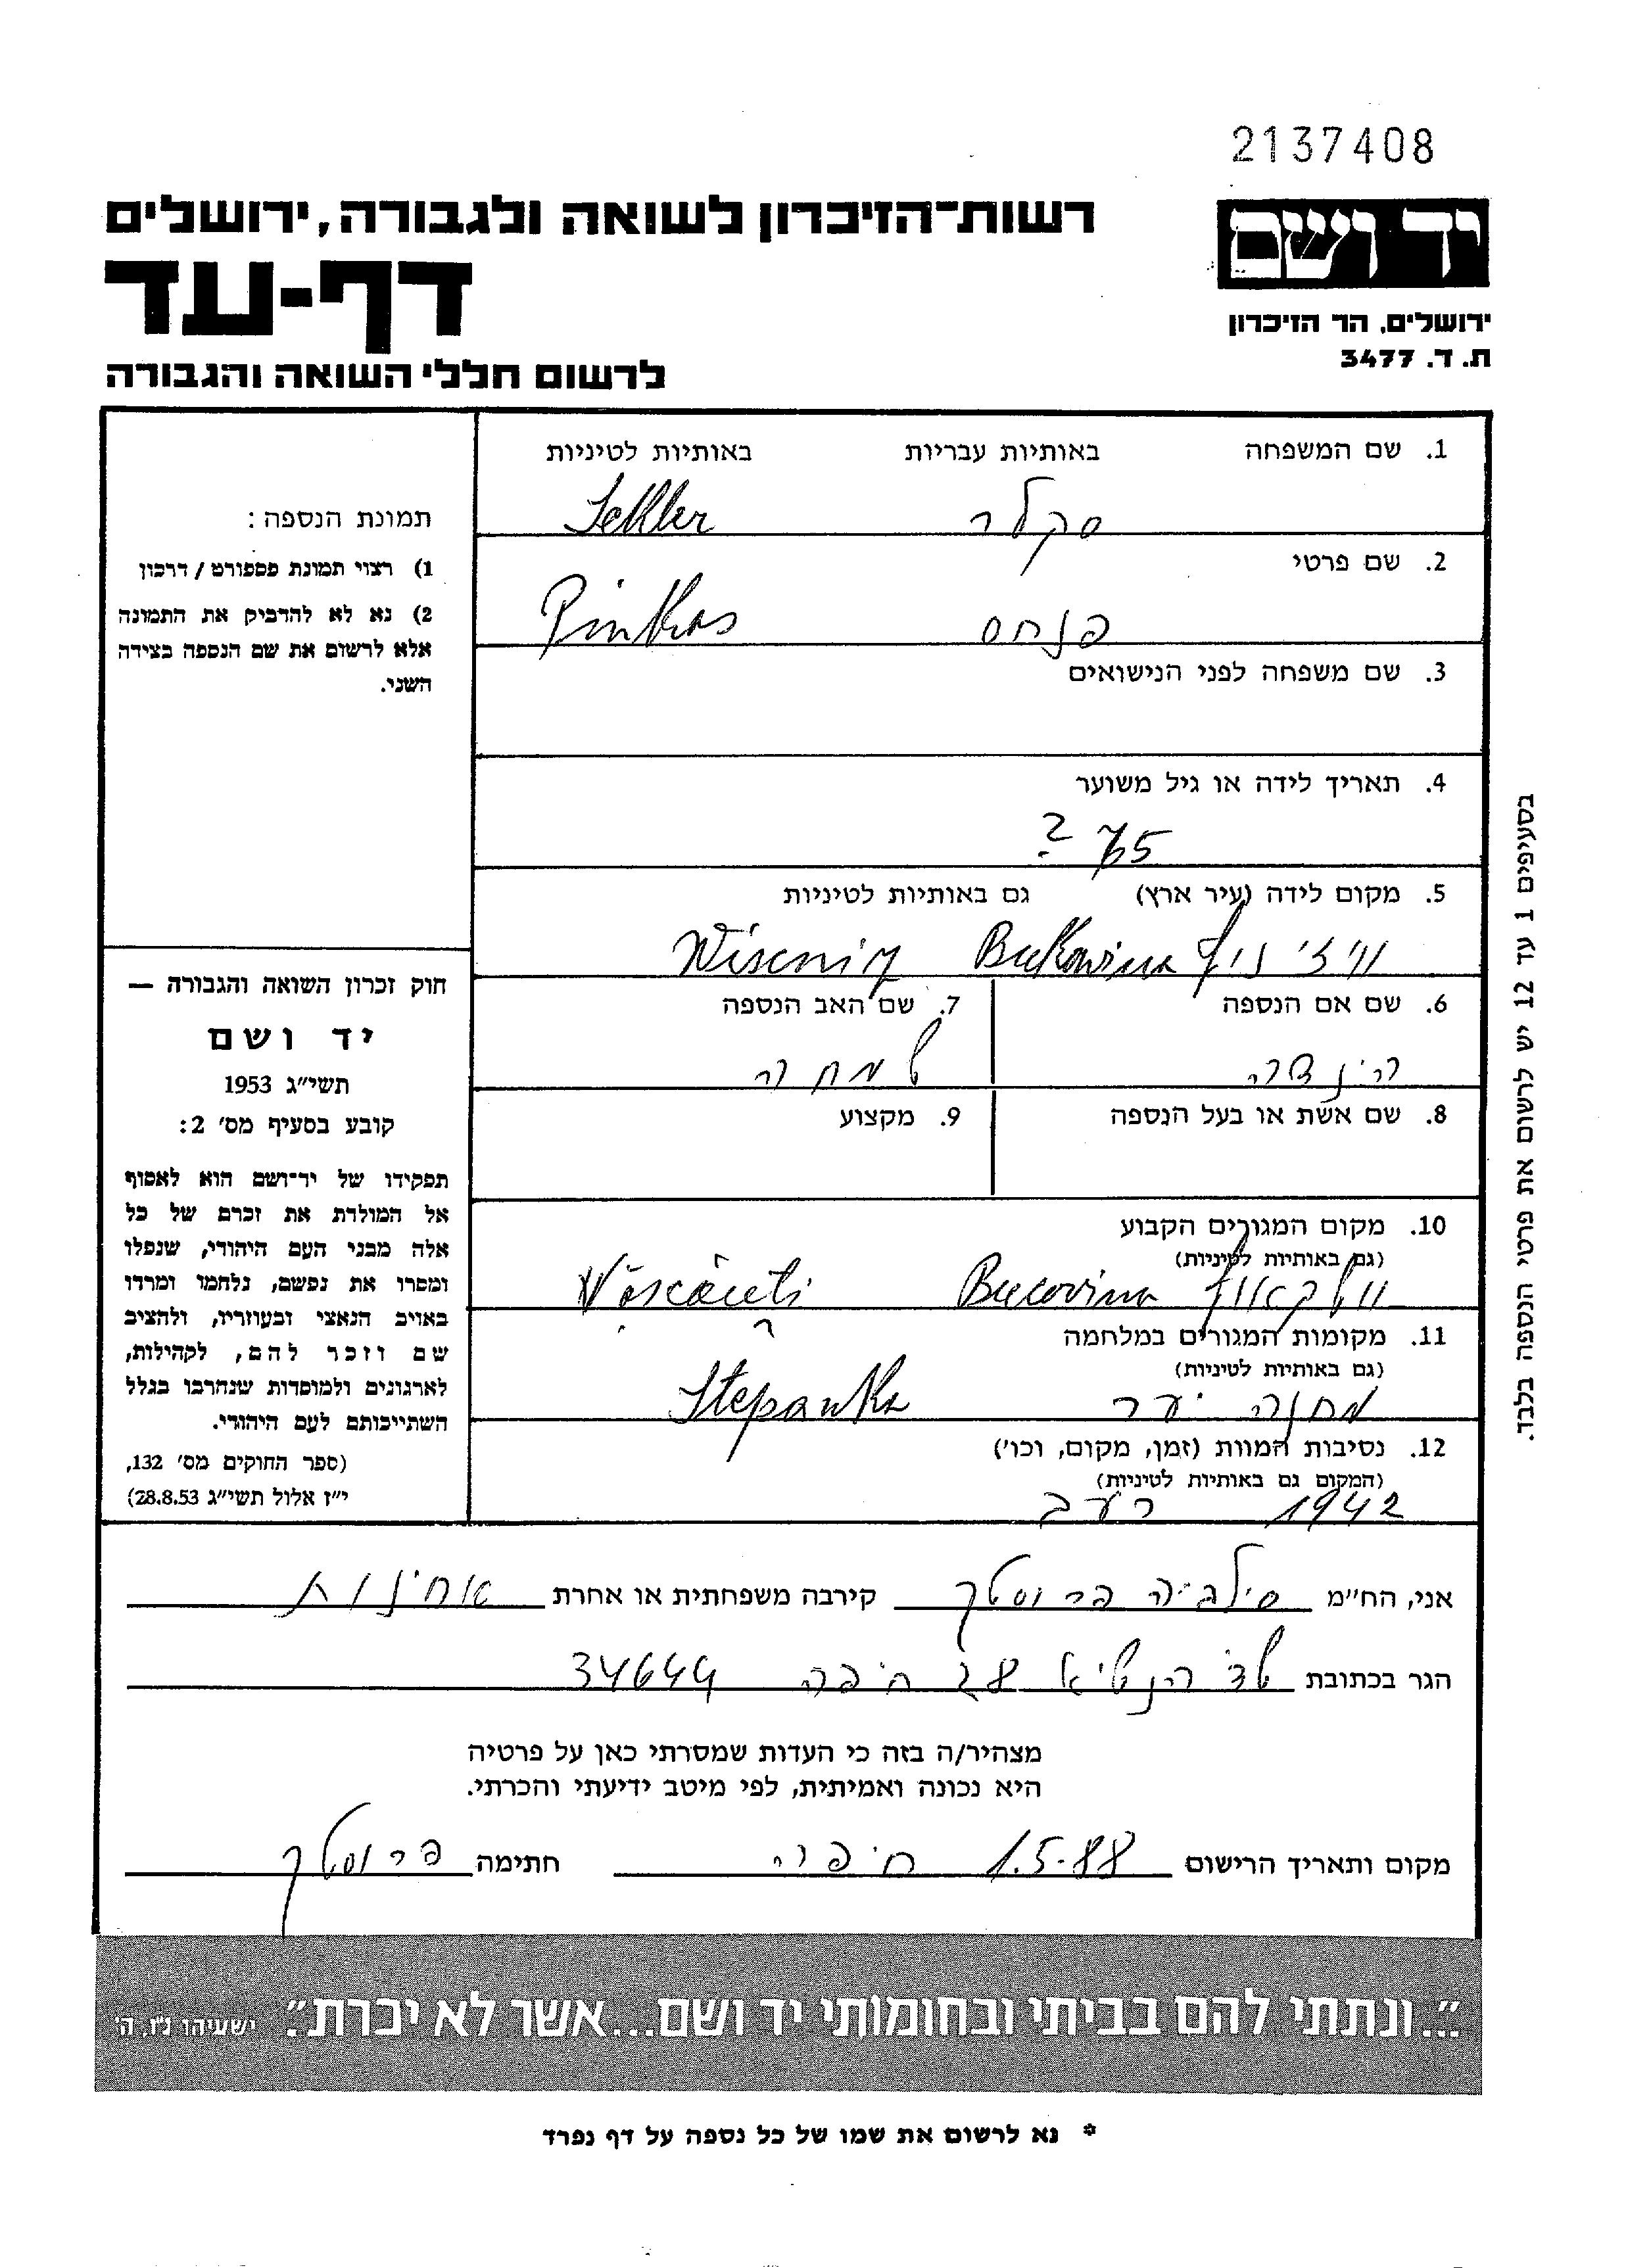 2137408
יד ושם
ירושלים, הר הזיכרון
ת. ד. 3477
רשות־הזיכרון לשואה ולגבורה, ירושלים
דף-עד
לרשום חללי השואה והגבורה
1. שם המשפחה באותיות עבריות באותיות לטיניות
סקלר Sekler
2. שם פרטי
פנחס Pinkas
3. שם משפחה לפני הנישואים
4. תאריך לידה או גיל משוער
75 ?
5. מקום לידה (עיר ארץ) גם באותיות לטיניות
וויז'ניץ Bukowina Wiscniz
6. שם אם הנספה 7. שם האב הנספה
הינדה שמחה
8. שם אשת או בעל הנספה 9. מקצוע
10. מקום המגורים הקבוע
(גם באותיות לטיניות)
Bucovina Văscăuti
11. מקומות המגורים במלחמה
(גם באותיות לטיניות)
מחנה יער Stepanka
12. נסיבות המוות (זמן, מקום, וכו')
(המקום גם באותיות לטיניות)
1942 רעב
תמונת הנספה:
1) רצוי תמונת פספורט / דרכון
2) נא לא להדביק את התמונה
אלא לרשום את שם הנספה בצידה
השני.
חוק זכרון השואה והגבורה —
יד ושם
תשי״ג 1953
קובע בסעיף מס׳ 2:
תפקידו של יד־ושם הוא לאסוף
אל המולדת את זכרם של כל
אלה מבני העם היהודי, שנפלו
ומסרו את נפשם, נלחמו ומרדו
באויב הנאצי ובעוזריו, ולהציב
שם וזכר להם, לקהילות,
לארגונים ולמוסדות שנחרבו בגלל
השתייכותם לעם היהודי.
(ספר החוקים מס׳ 132,
י״ז אלול תשי״ג 28.8.53)
בסעיפים 1 עד 12 יש לרשום את פרטי הנספה בלבד.
אני, הח״מ סילביה פרוסטק קירבה משפחתית או אחרת אחינות
הגר בכתובת שד' הנשיא 28 חיפה 34644
מצהיר/ה בזה כי העדות שמסרתי כאן על פרטיה
היא נכונה ואמיתית, לפי מיטב ידיעתי והכרתי.
מקום ותאריך הרישום 1.5.88 חיפה חתימה פרוסטק
״...ונתתי להם בביתי ובחומותי יד ושם...אשר לא יכרת״. ישעיהו נ״ו, ה׳
* נא לרשום את שמו של כל נספה על דף נפרד